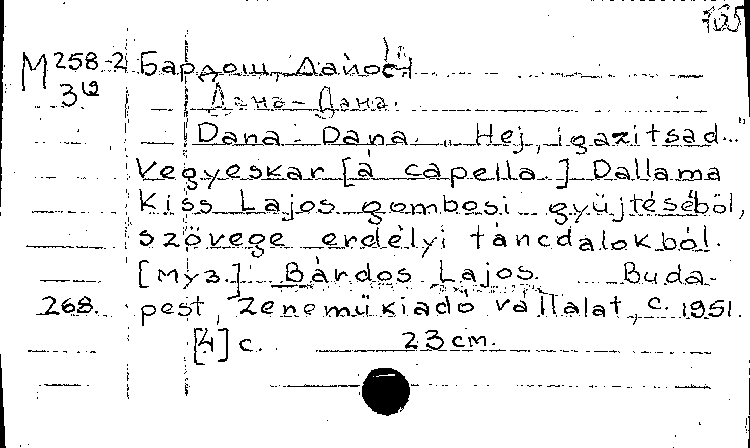 755
M 258-2 Бардош, Лайош
3 62
Дана - Дана.
Dana - Dana. „Hej, igazitsad..."
Vegyeskar [á capella.] Dallama
Kiss Lajos gombosi gyüjtéséböl,
szövege erdélyi táncdalokból.
[Муз.] Bárdos Lajos. Buda-
268. pest, Zenemükiadó vállalat, c. 1951.
[4] с. 23 cm.